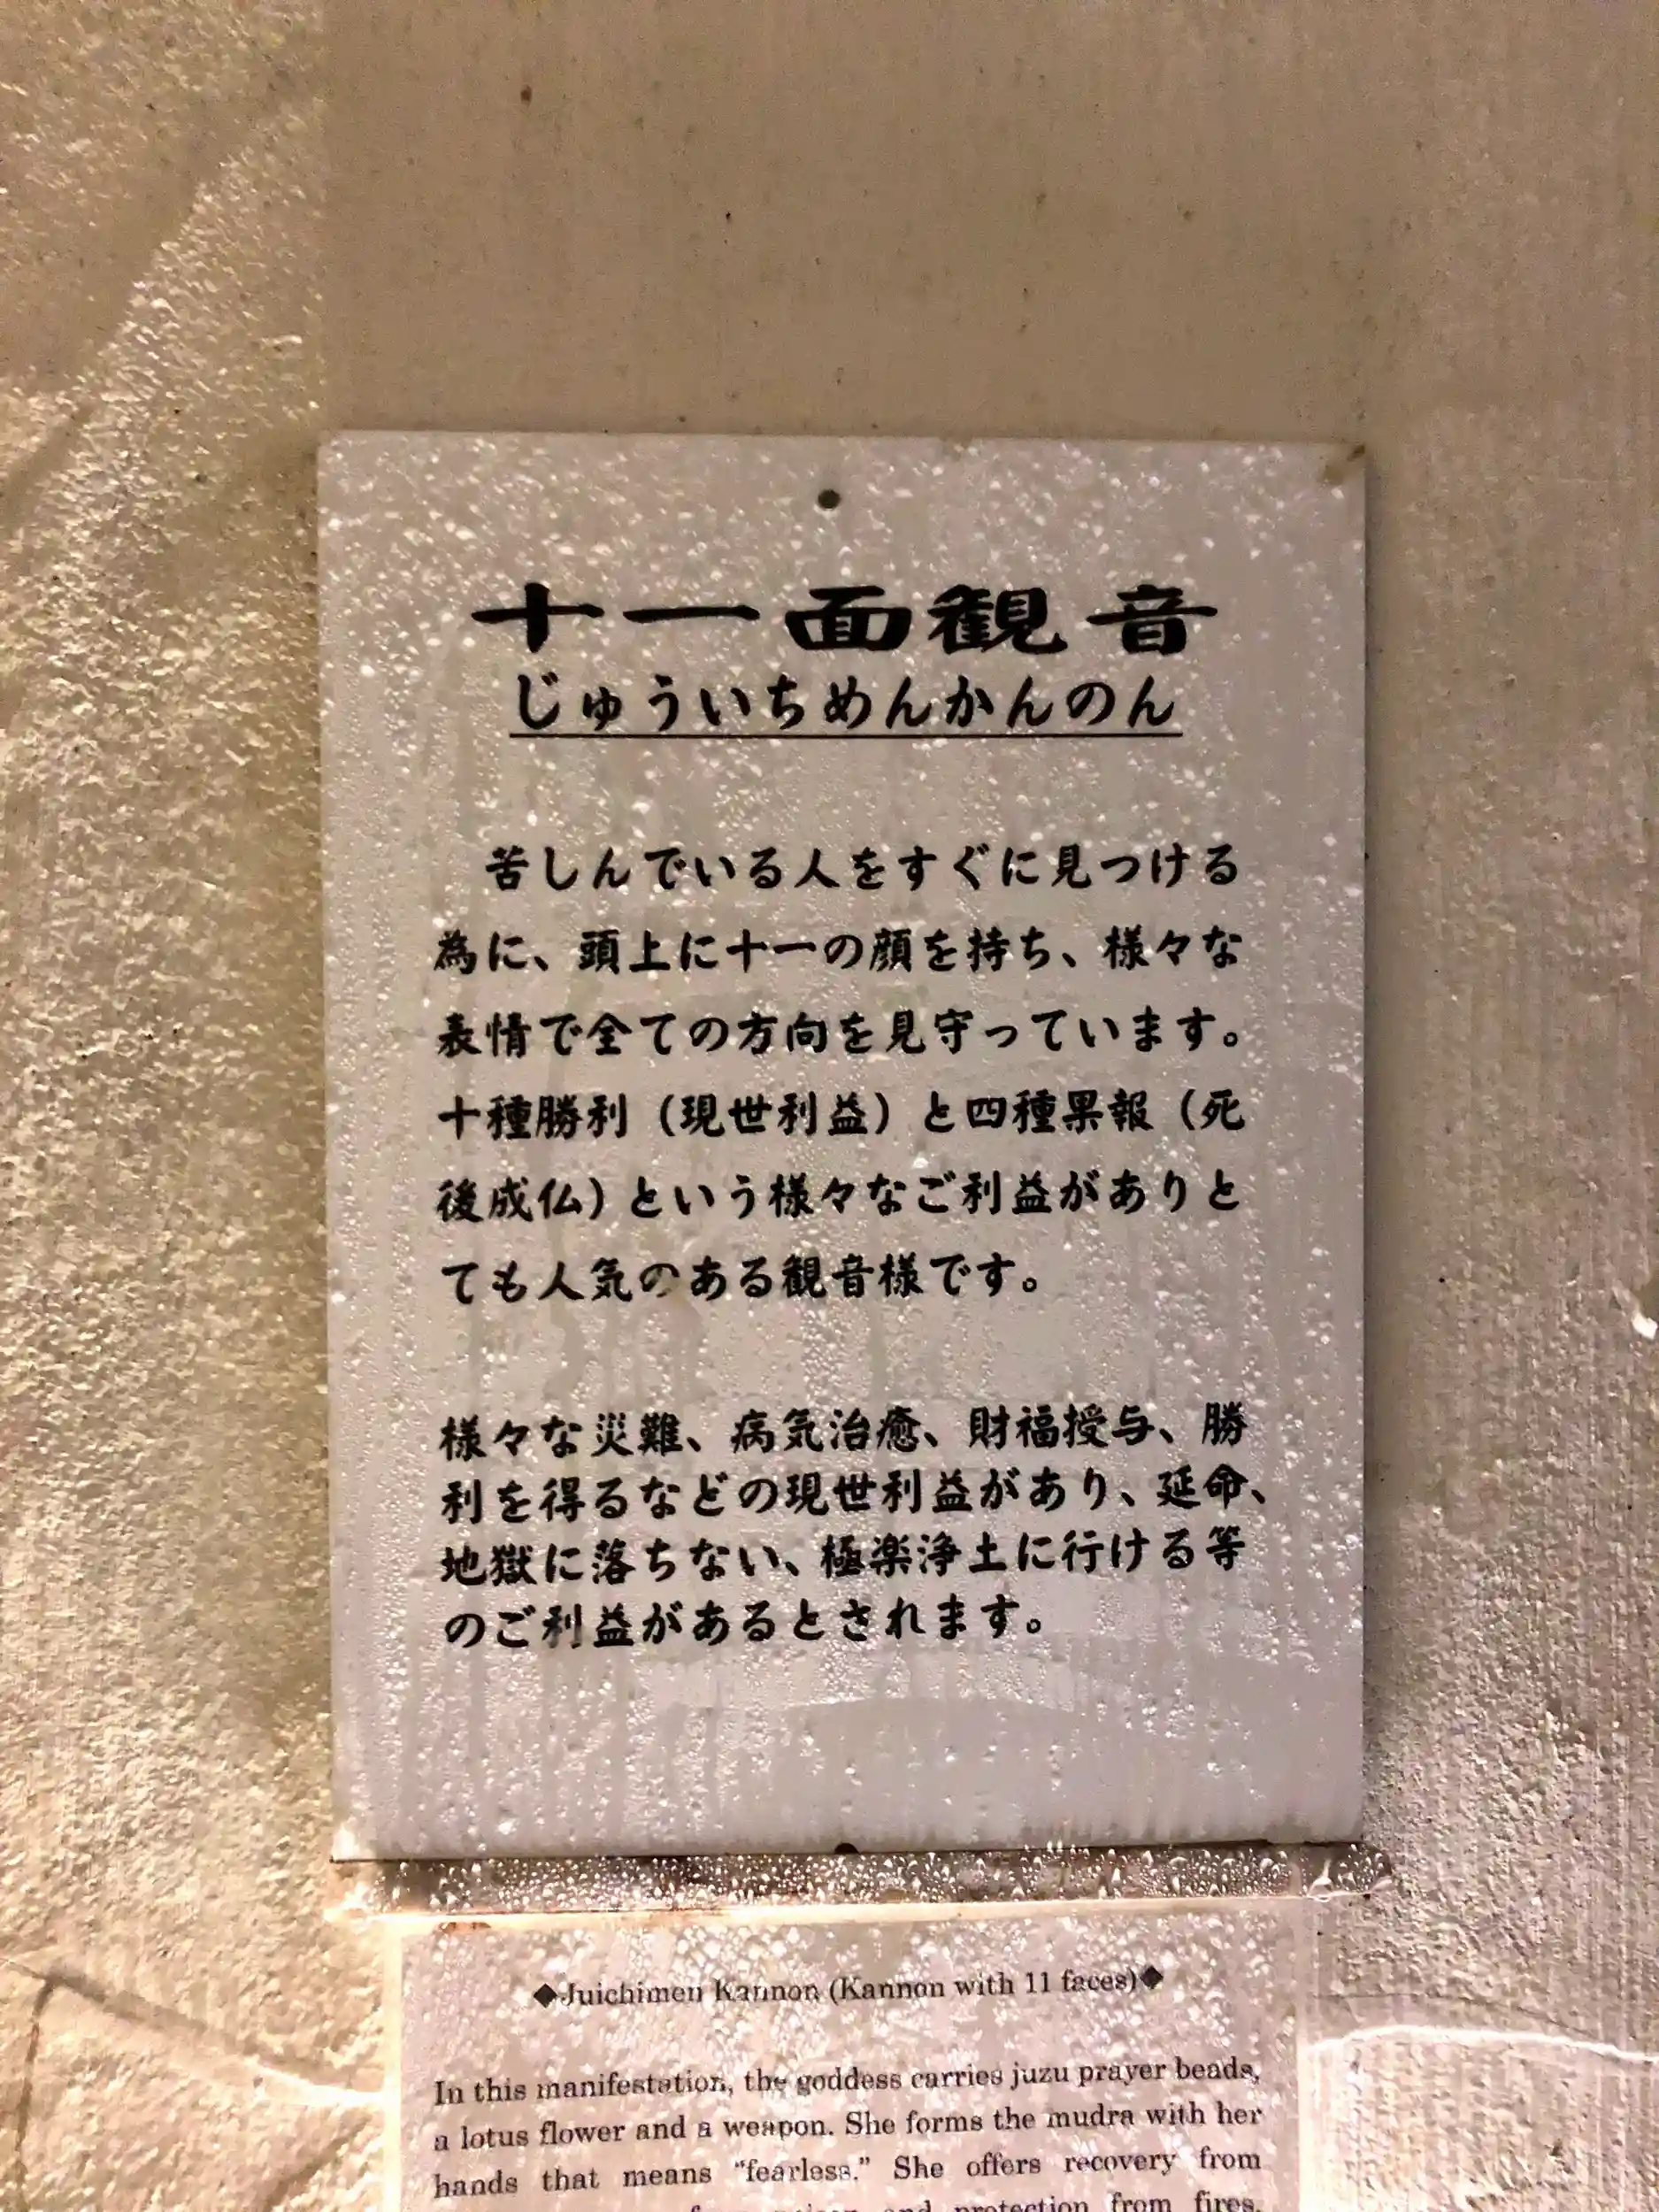 十一面観音
じゅういちめんかんのん
苦しんでいる人をすぐに見つける
為に、頭上に十一の顔を持ち、様々な
表情で全ての方向を見守っています。
十種勝利（現世利益）と四種果報（死
後成仏）という様々なご利益がありと
ても人気のある観音様です。
様々な災難、病気治癒、財福授与、勝
利を得るなどの現世利益があり、延命、
地獄に落ちない、極楽浄土に行ける等
のご利益があるとされます。
◆Juichimen Kannon (Kannon with 11 faces)◆
In this manifestation, the goddess carries juzu prayer beads,
a lotus flower and a weapon. She forms the mudra with her
hands that means “fearless.” She offers recovery from
and protection from fires,